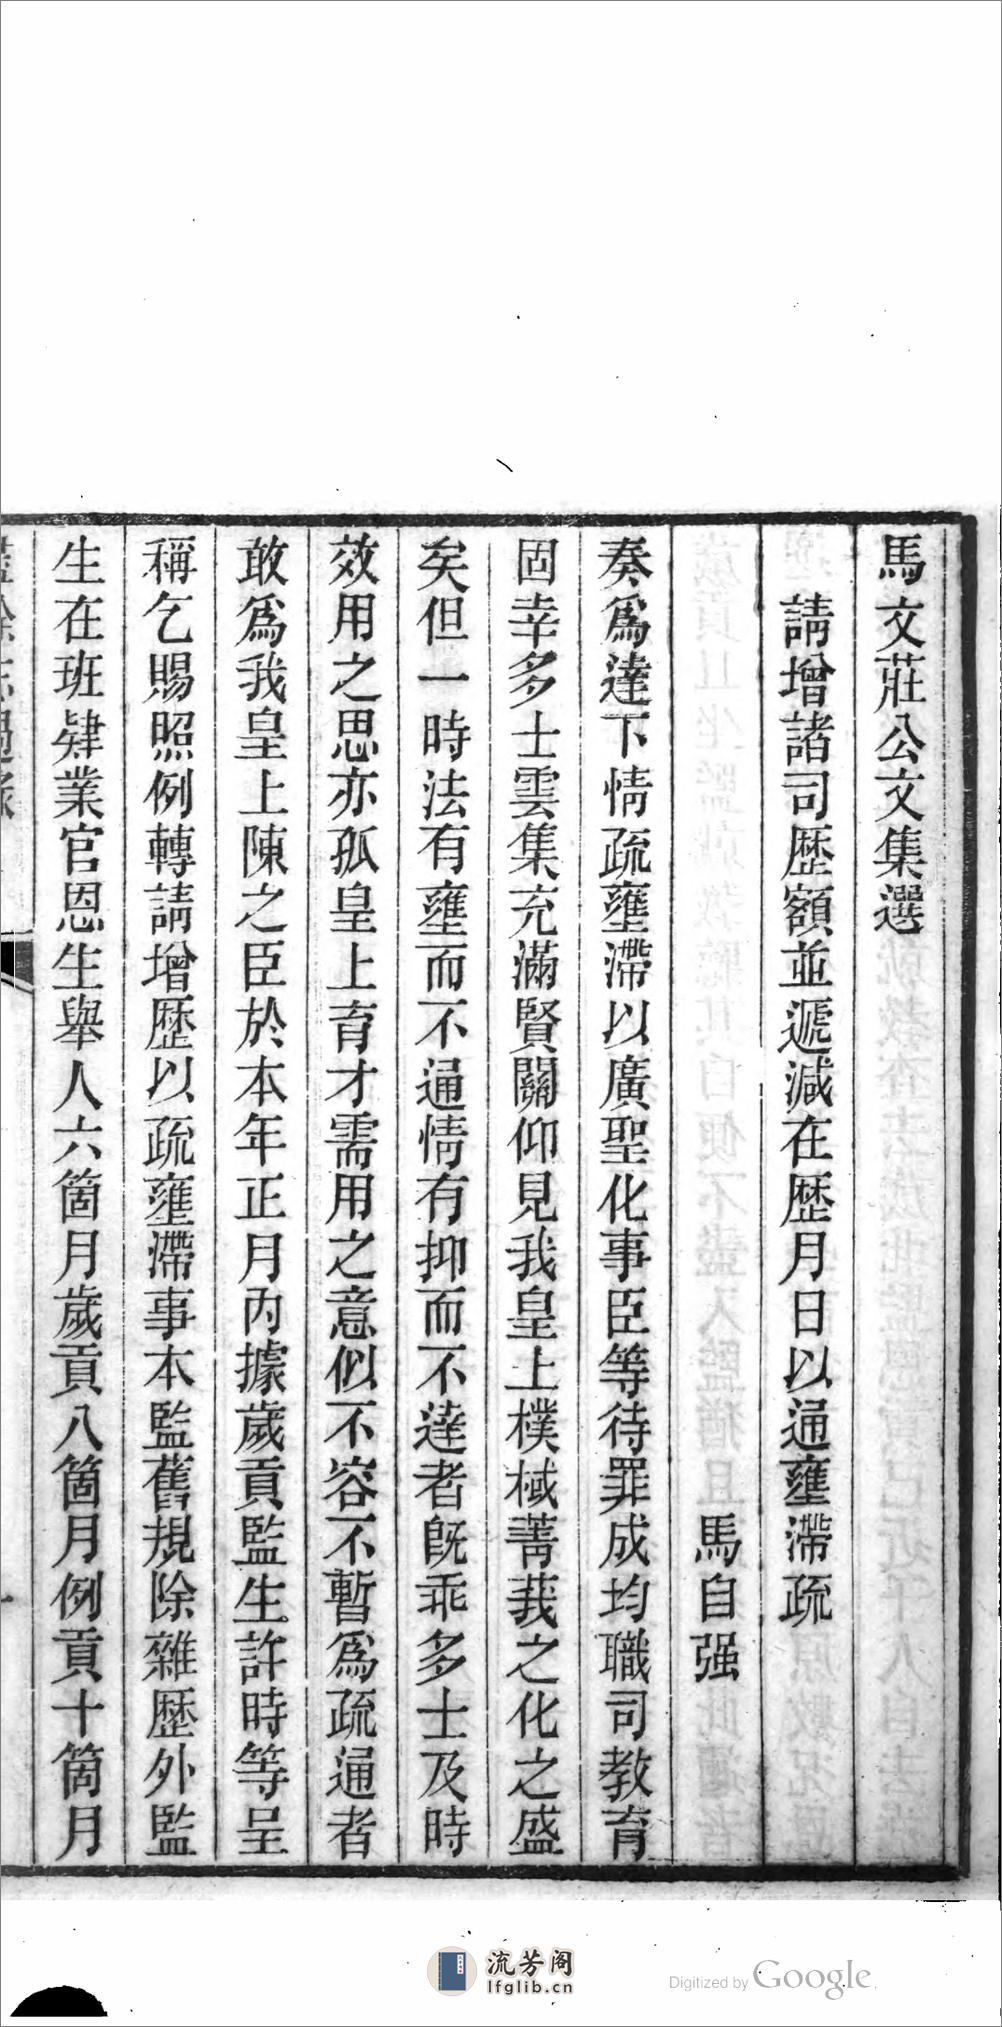 馬文莊公文集選
請增諸司歷額並遞減在歷月日以通壅滯疏
馬自强
奏爲達下情疏壅滯以廣聖化事臣等待罪成均職司教育
固幸多士雲集充滿賢關仰見我皇上樸棫菁莪之化之盛
矣但一時法有壅而不通情有抑而不達者旣乖多士及時
效用之思亦孤皇上育才需用之意似不容不暫爲疏通者
敢爲我皇上陳之臣於本年正月內據歲貢監生許時等呈
稱乞賜照例轉請增歷以疏壅滯事本監舊規除雜歷外監
生在班肄業官恩生舉人六箇月歲貢八箇月例貢十箇月
流芳阁
lfglib.cn
Digitized by Google